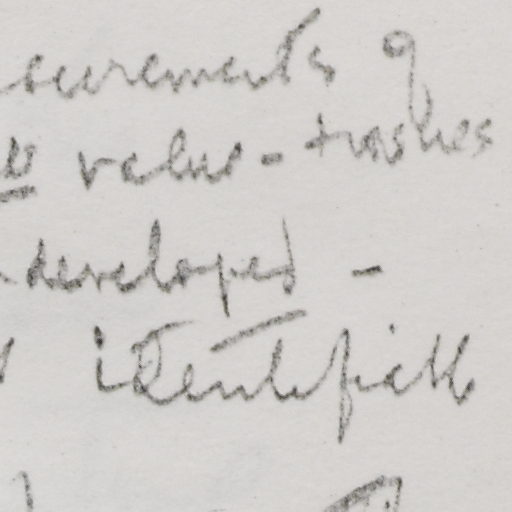 surements of
value - trashes
developed -
identifiable